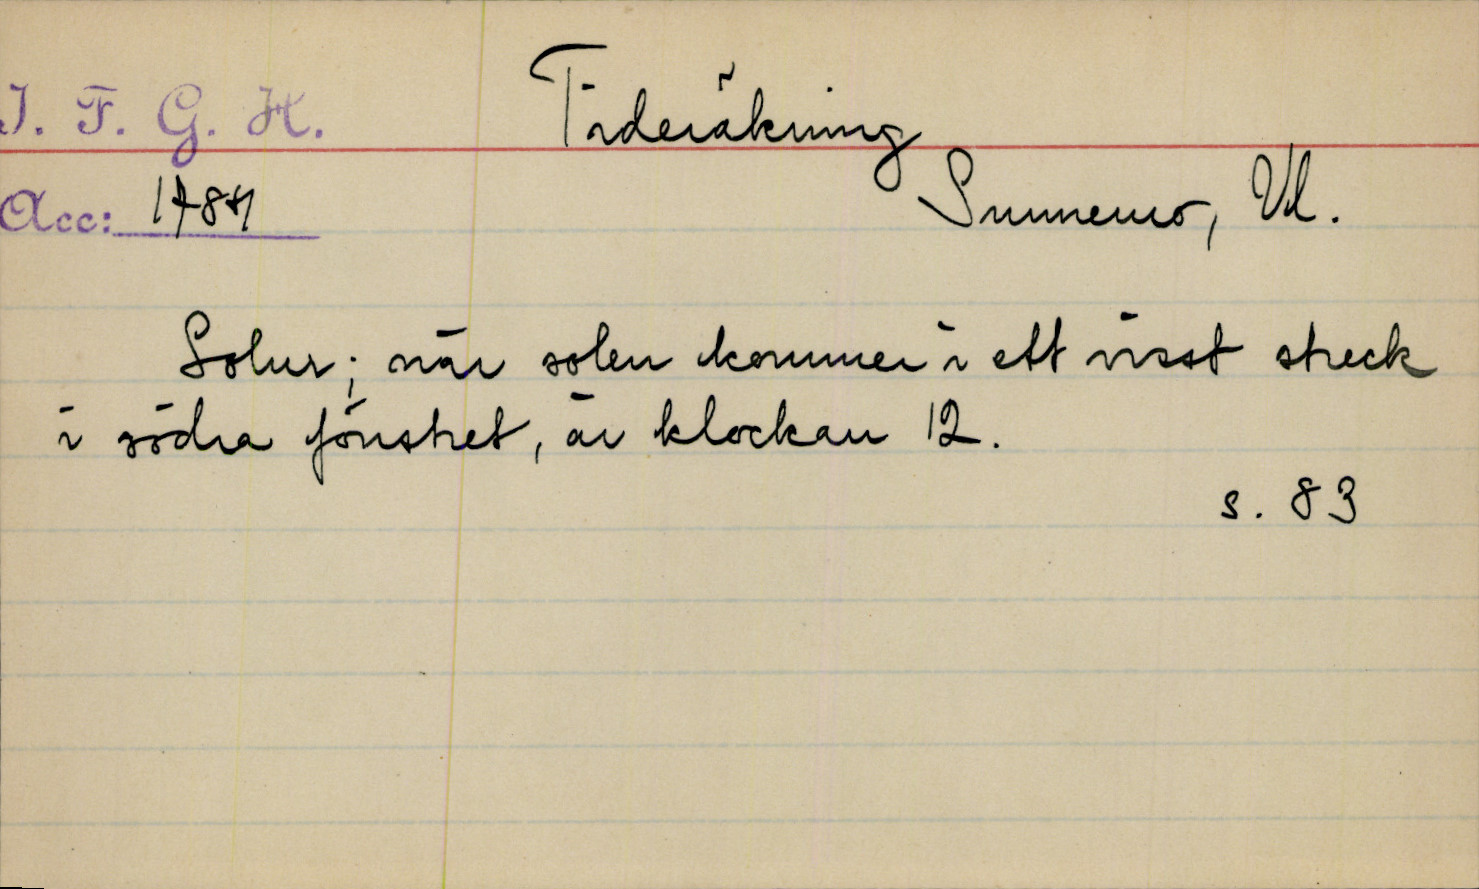 Tideräkning
I. F. G. H.
Sunnemo, Vl.
Acc: 1784
Solur; när solen kommer i ett visst streck
i södra fönstret, är klockan 12.
s. 83